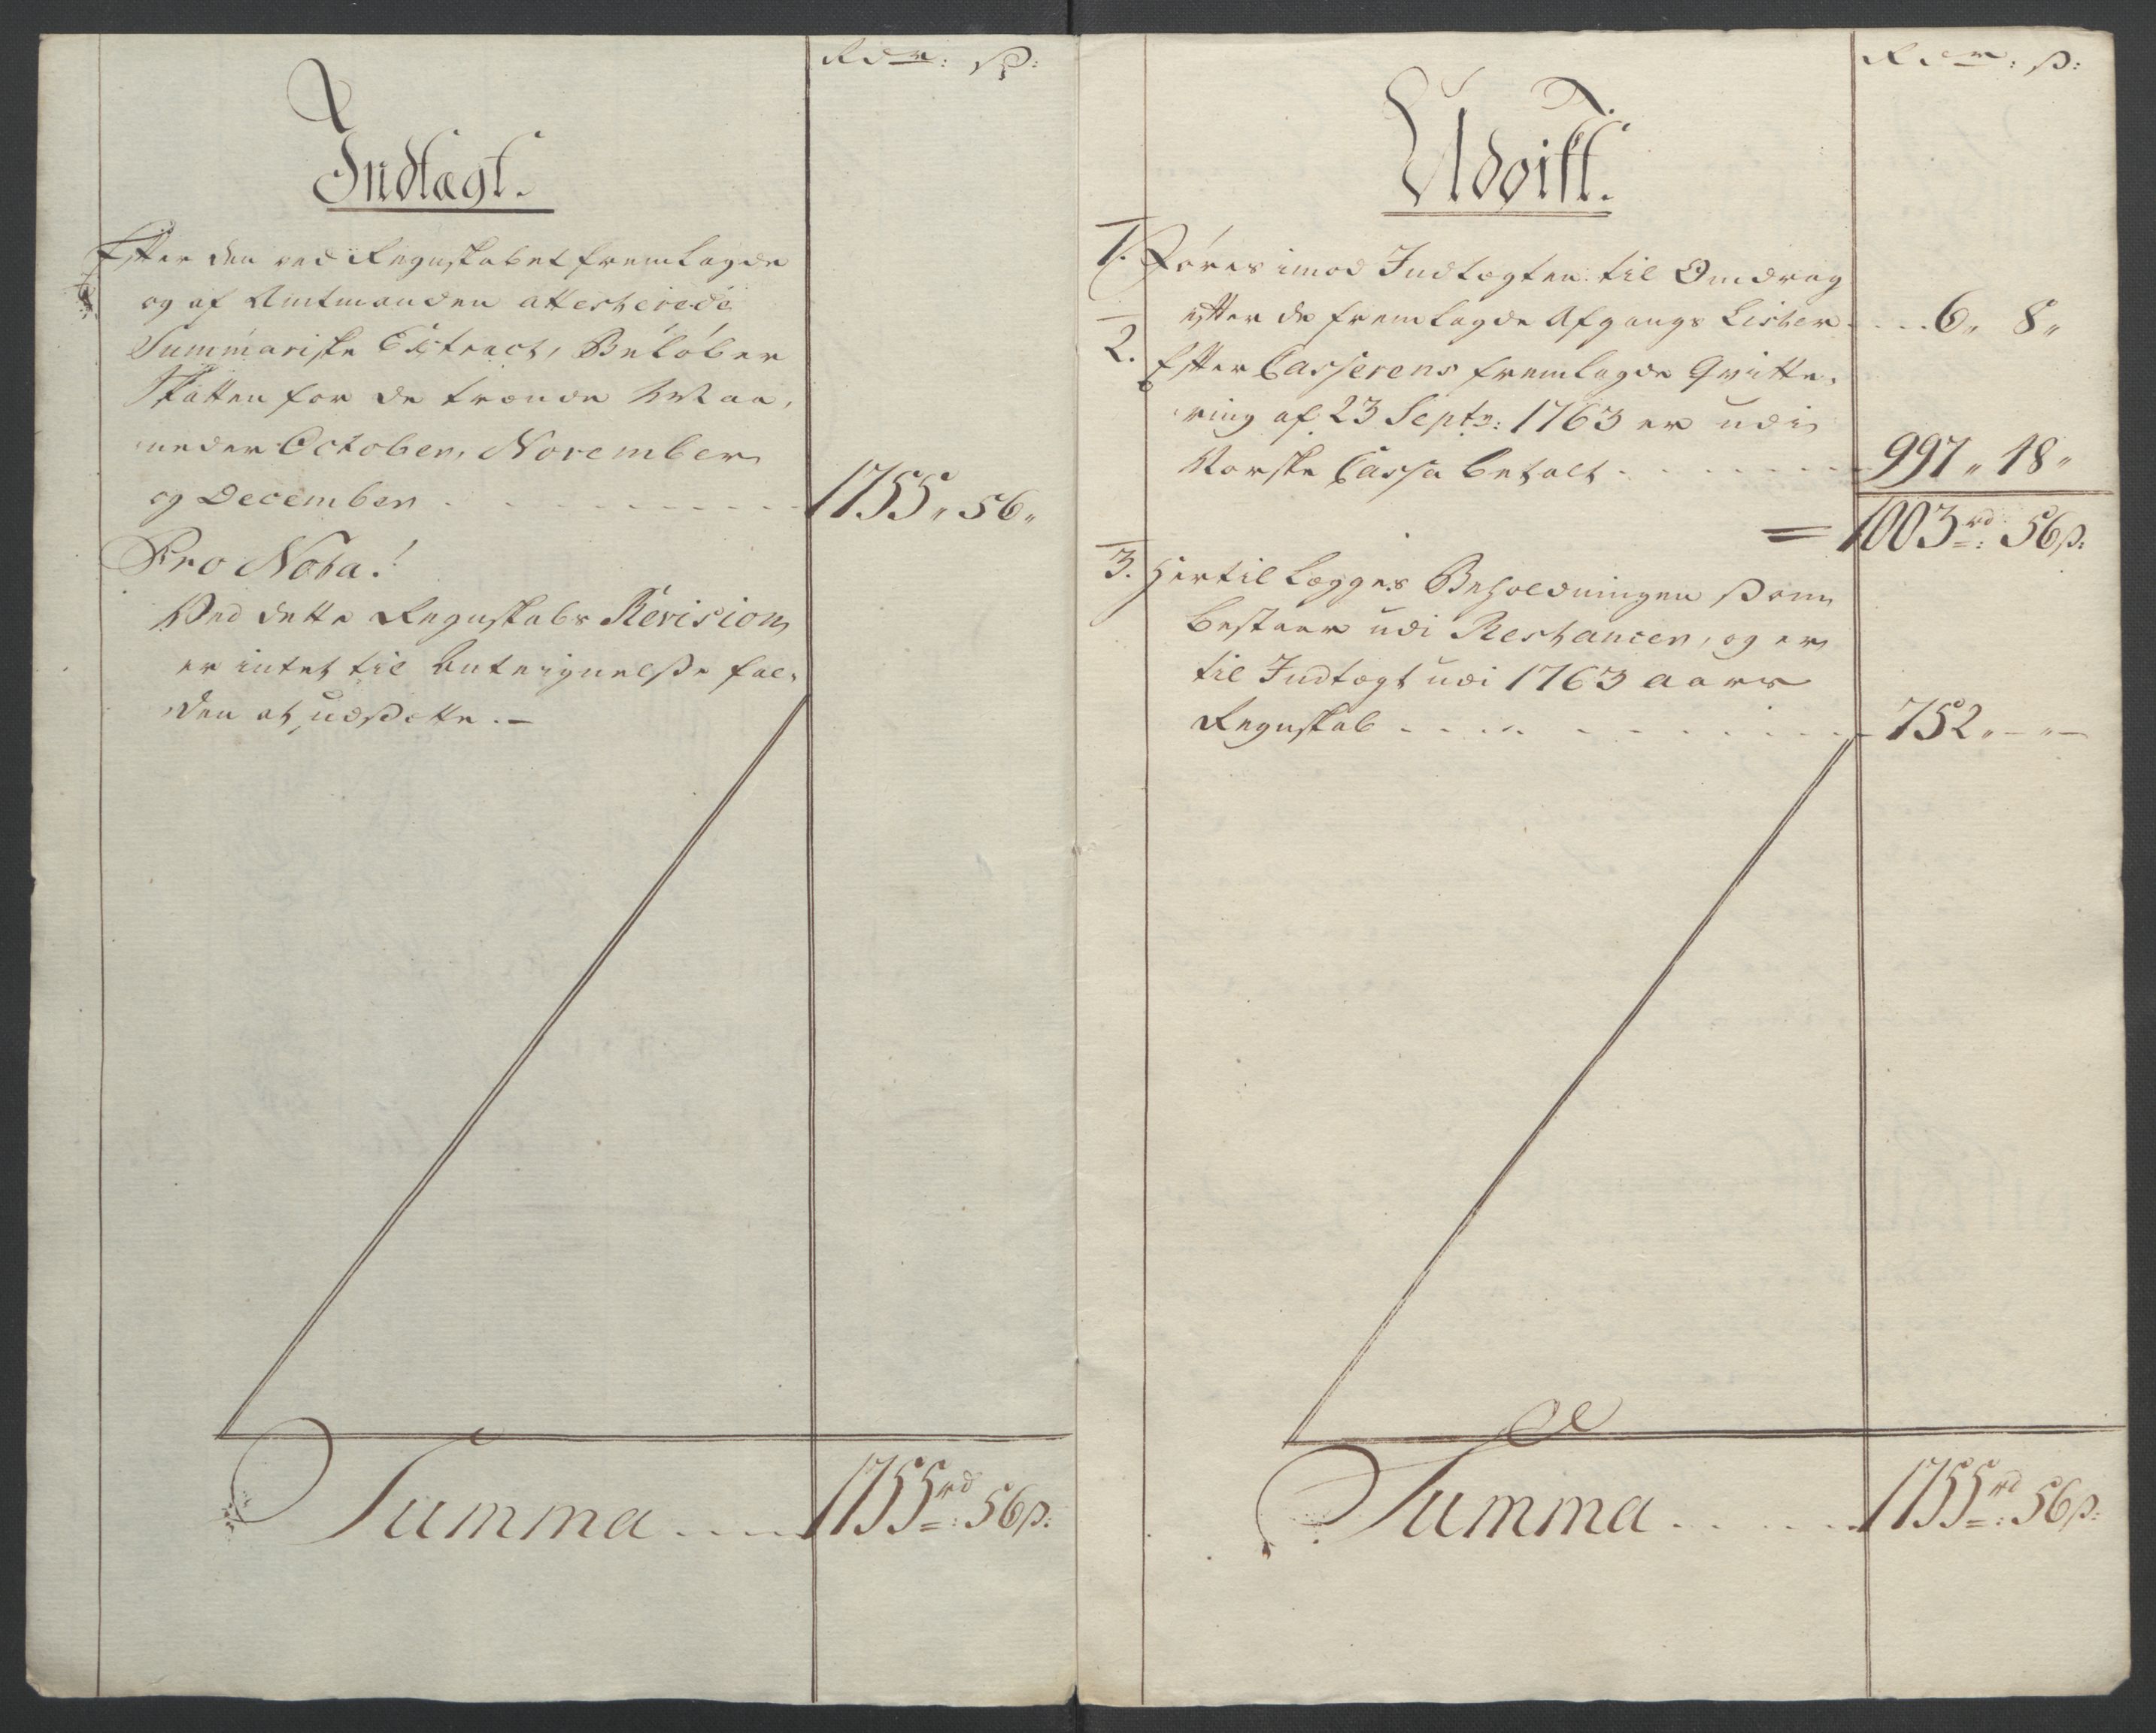 Rdr: ß:
Indtægt.
Efter den ved Regnskabet fremlagde
og af Amtmanden attesterede
Summariske Extract, Beløber
Skatten for de trende Maa,
neder October, November
og December . . . . . . . . 1755 „ 56 „
Pro Nota!
Ved dette Regnskabs Revision
er intet til Antegnelse fal,
den at udsætte. —
Summa . . . . 1755 rd: 56 ß:
Rdr: ß:
Udgift.
1. Føres imod Indtægten til Omdrag
efter de fremlagde Afgangs Lister . . . . 6 „ 8 „
2. Efter Casserens fremlagde Qvitte,
ring af 23 Septr: 1763 er udi
Norske Cassa betalt . . . . . . . . 997 „ 48 „
= 1003 rd: 56 ß:
3. Hertil lægges Beholdningen som
bestaar udi Restancer, og er
til Indtægt udi 1763 aars
Regnskab . . . . . . . . . . . 752 „ — „ —
Summa . . . . . . 1755 rd: 56 ß: